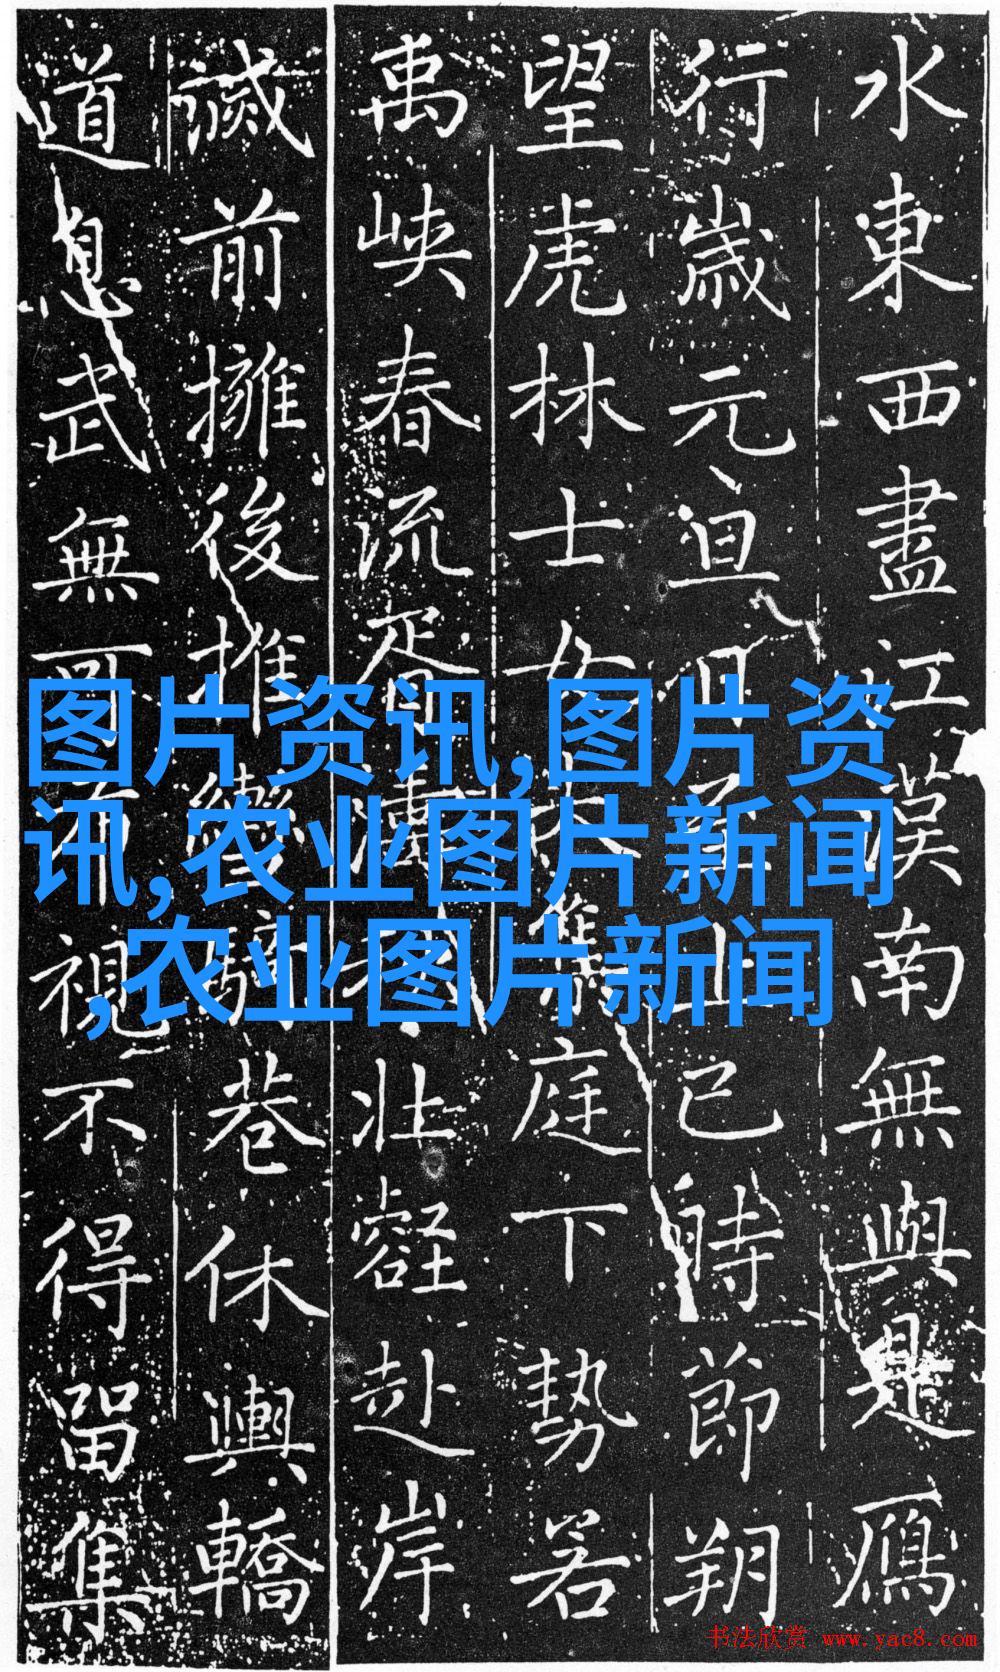 水東西盡江漢南無與是鴈
行歲元旦已時節朔
望虎林士女大庭下勢若
禹峽春流胥濤壯壑赴岸
前擁後推巷休輿轎
道息武無視不得留集
图片资讯,图片资
讯,农业图片新闻
,农业图片新闻
书法欣赏 www.yac8.com